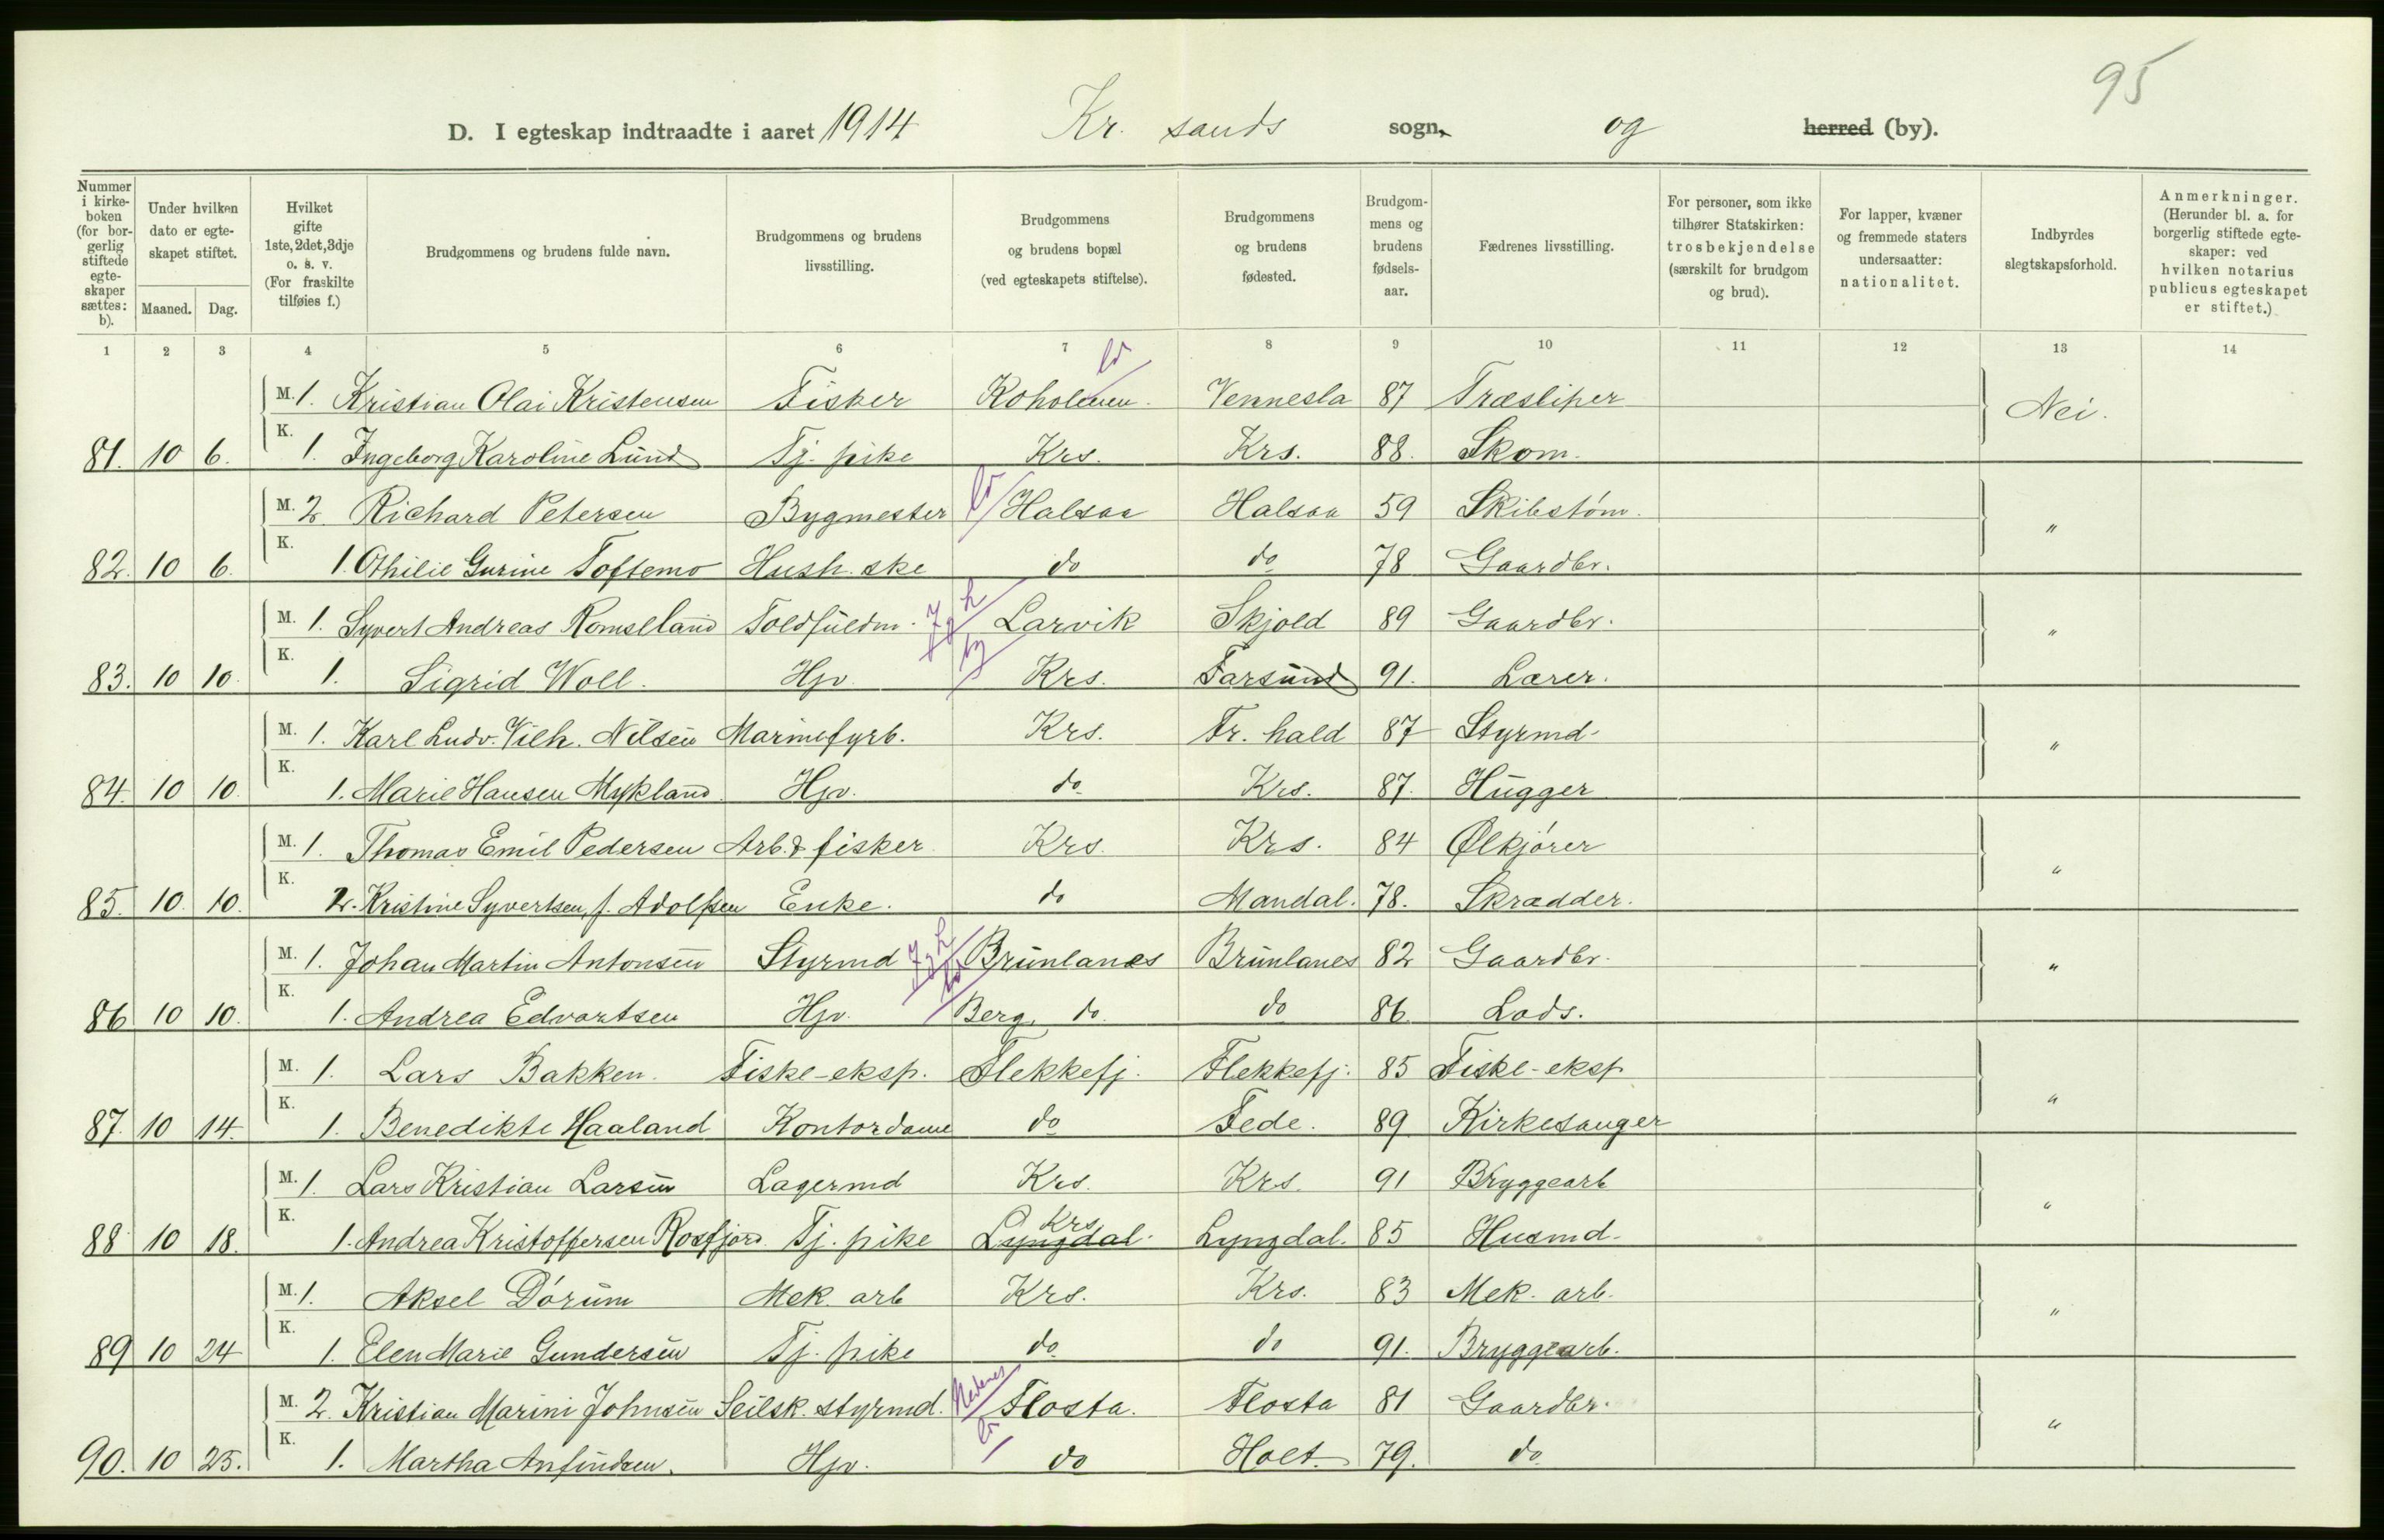 95
D. I egteskap indtraadte i aaret 1914 Kr. sands sogn, og herred (by).
Nummer i kirkeboken (for borgerlig stiftede egteskaper sættes: b).
Under hvilken dato er egteskapet stiftet.
Maaned. Dag.
Hvilket gifte 1ste, 2det, 3dje o. s. v. (For fraskilte tilføies f.)
Brudgommens og brudens fulde navn.
Brudgommens og brudens livsstilling.
Brudgommens og brudens bopæl (ved egteskapets stiftelse).
Brudgommens og brudens fødested.
Brudgommens og brudens fødselsaar.
Fædrenes livsstilling.
For personer, som ikke tilhører Statskirken: trosbekjendelse (særskilt for brudgom og brud).
For lapper, kvæner og fremmede staters undersaatter: nationalitet.
Indbyrdes slegtskapsforhold.
Anmerkninger. (Herunder bl. a. for borgerlig stiftede egteskaper: ved hvilken notarius publicus egteskapet er stiftet.)
1 2 3 4 5 6 7 8 9 10 11 12 13 14
M. 1. Kristian Olai Kristensen Fisker Koholmen. Vennesla 87 Træsliper Nei.
81. 10 6. K. 1. Ingeborg Karoline Lund Tj. pike Krs. Krs. 88. Skom.
M. 2. Richard Petersen Bygmester Halsaa Halsaa 59 Skibstøm. "
82. 10 6. K. 1. Othilie Gurine Toftemo Hush. ske do do 78 Gaardbr.
M. 1. Syvert Andreas Romsland Toldfuldm. Larvik Skjold 89 Gaardbr. "
83. 10 10. K. 1. Sigrid Woll. Hjv. by Krs. Farsund 91. Lærer.
M. 1. Karl Ludv. Vilh. Nilsen Marinefyrb. Krs. Fr. hald 87 Styrmd. "
84. 10 10. K. 1. Marie Hansen Mykland. Hjv. do Krs. 87. Hugger
M. 1. Thomas Emil Pedersen Arb. & fisker Krs. Krs. 84 Ølkjører "
85. 10. 10. K. 2. Kristine Syvertsen, f. Adolfsen Enke. do Mandal. 78. Skrædder.
M. 1. Johan Martin Antonsen Styrmd Brunlanes Brunlanes 82 Gaardbr. "
86 10 10. K. 1. Andrea Edvartsen Hjv. Berg, do. do 86. Lods.
M. 1. Lars Bakken. Fiske-eksp. Flekkefj. Flekkefj. 85 Fiske-eksp "
87. 10 14. K. 1. Benedikte Haaland Kontordame do Fede. 89 Kirkesanger
M. 1. Lars Kristian Larsen Lagermd Krs. Krs. 91 Bryggearb "
88 10 18. K. 1. Andrea Kristoffersen Rosfjord. Tj. pike Lyngdal. Krs Lyngdal. 85 Husmd.
M. 1. Aksel Dórum Mek. arb Krs. Krs. 83 Mek. arb. "
89 10 24 K. 1. Elen Marie Gundersen Tj. pike do do 91. Bryggearb.
M. 2. Kristian Marini Johnsen Seilsk. styrmd. Nedenes Flosta. Flosta 81 Gaardbr. "
90. 10 25. K. 1. Martha Anfindsen. Hjv. do Holt 79. do